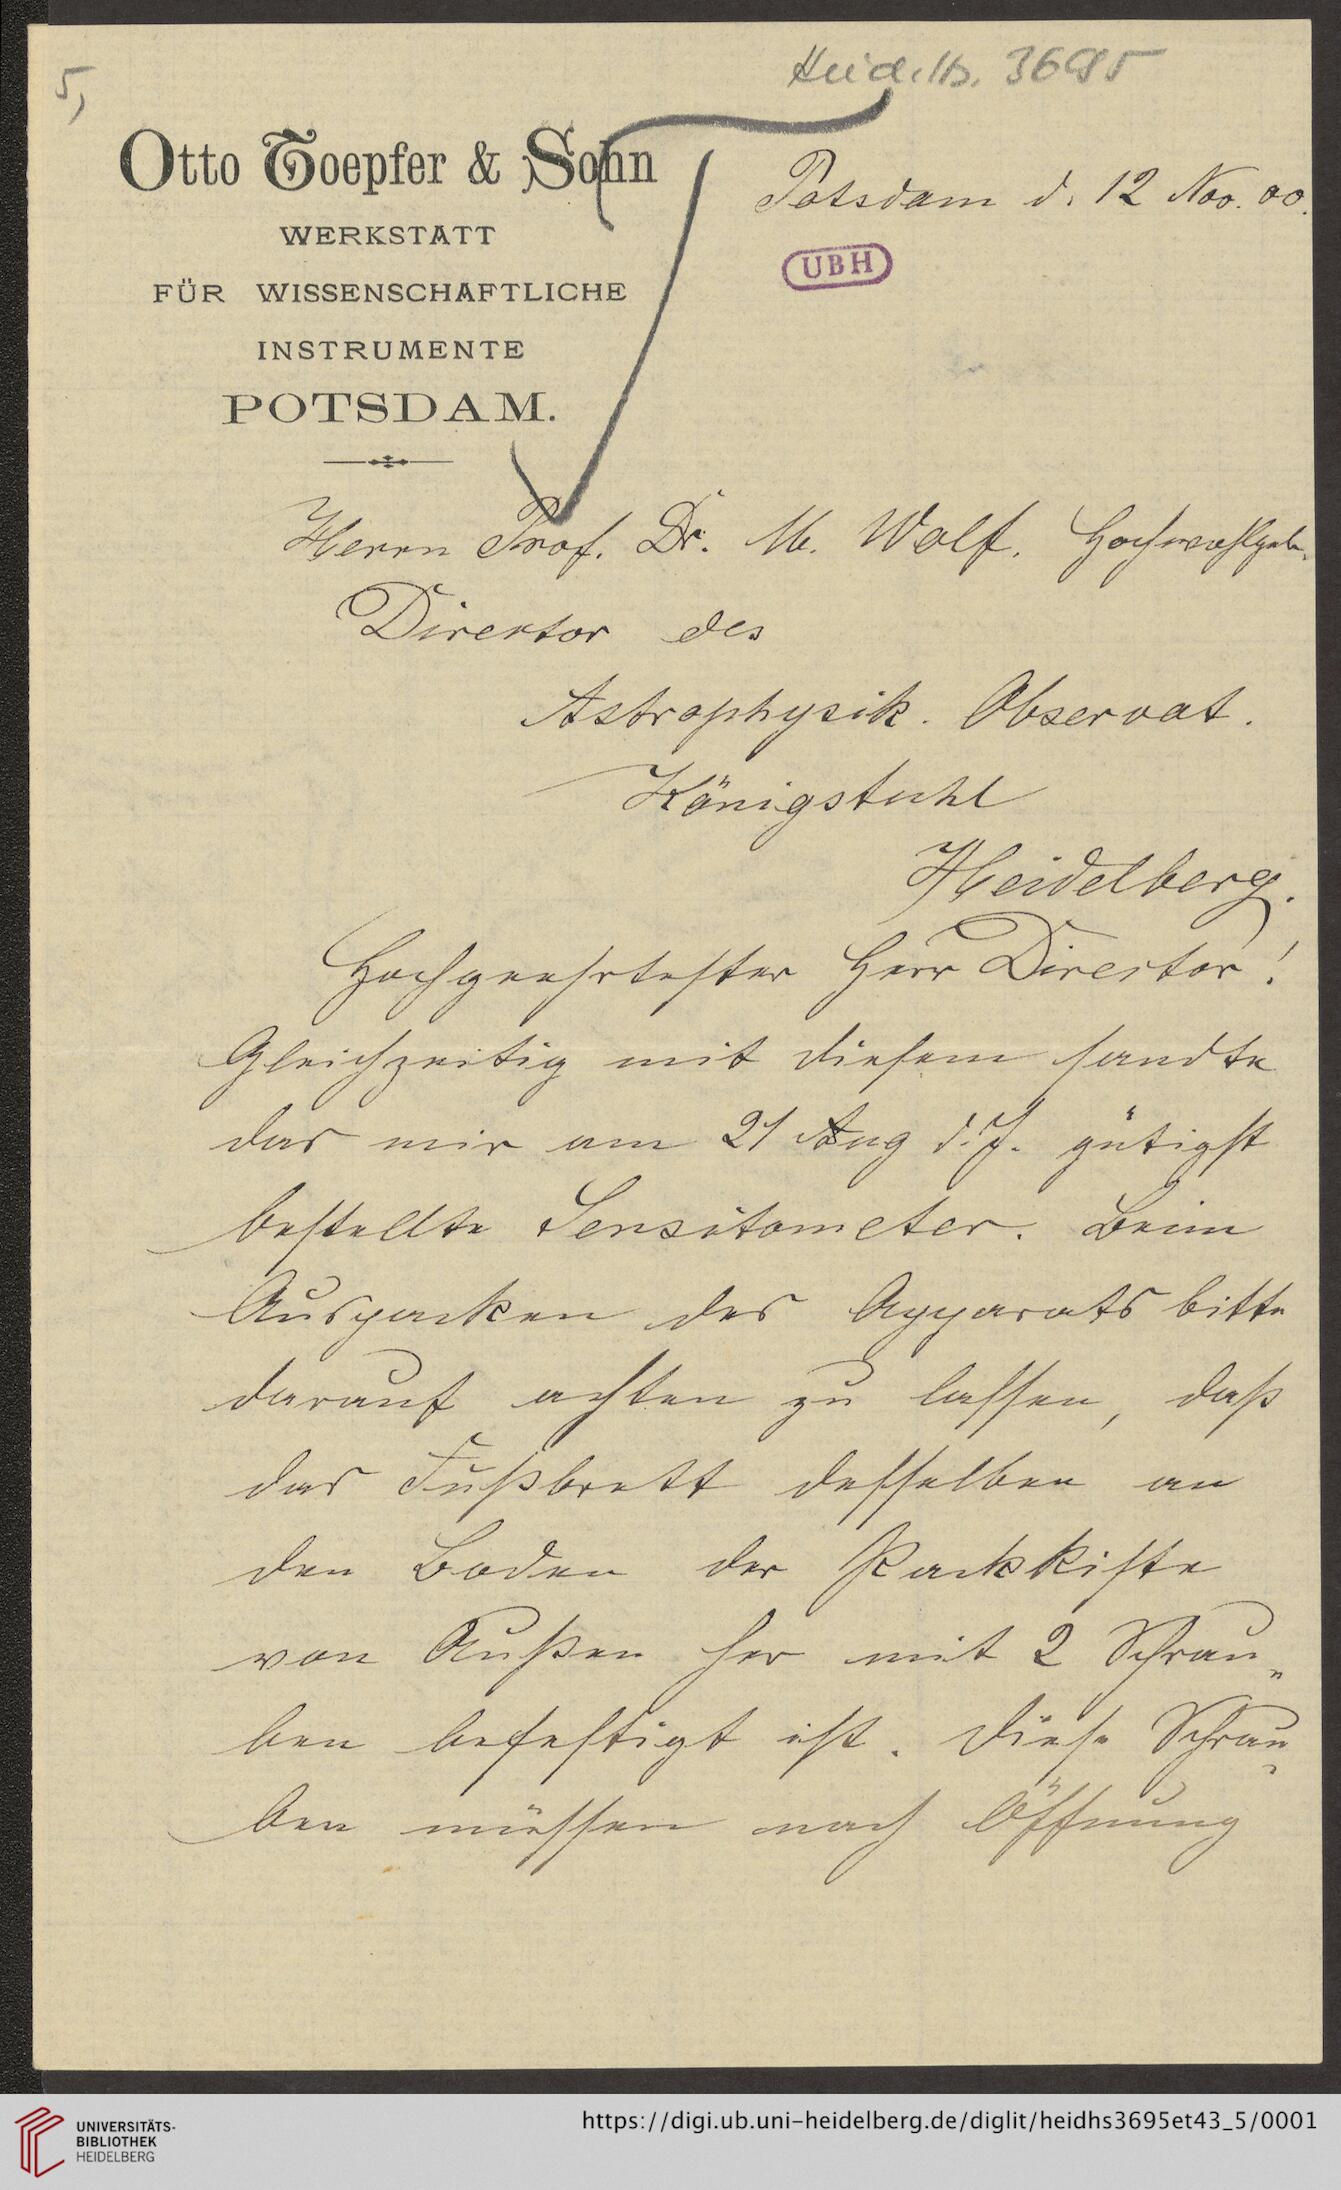 Heid. Hs. 3695
5,
Otto Toepfer & Sohn
WERKSTATT
FÜR WISSENSCHAFTLICHE
INSTRUMENTE
POTSDAM.
Potsdam d. 12 Nov. 00.
UBH
Herrn Prof. Dr. M. Wolf. Hochwohlgeb.
Director des
Astrophysik. Observat.
Königstuhl
Heidelberg.
Hochgeehrtester Herr Director!
Gleichzeitig mit diesem sandte
das mir am 21 Aug d. J. gütigst
bestellte Sensitometer. Beim
Auspacken des Apparats bitte
darauf achten zu lassen, daß
das Fußbrett desselben an
den Boden der Packkiste
von Außen her mit 2 Schrau„
ben befestigt ist. Diese Schrau„
ben müssen nach Öffnung
UNIVERSITÄTS-
BIBLIOTHEK
HEIDELBERG
https://digi.ub.uni-heidelberg.de/diglit/heidhs3695et43_5/0001